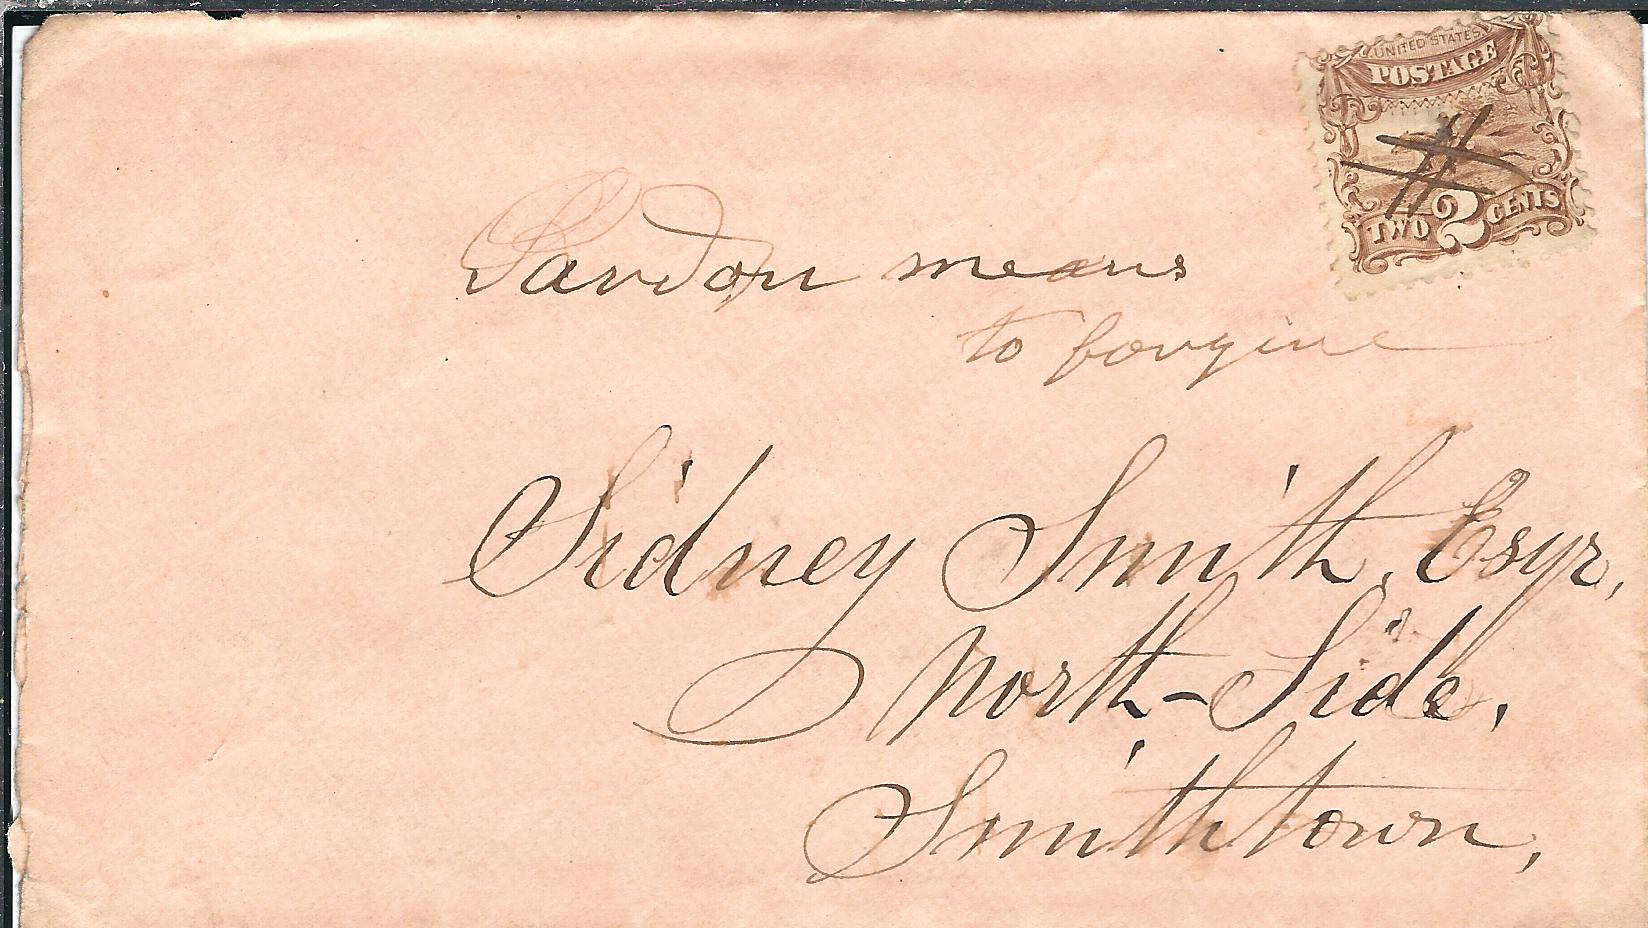 UNITED STATES
POSTAGE
TWO 2 CENTS
Pardon means
to forgive
Sidney Smith, Esqr,
North-Side,
Smithtown,